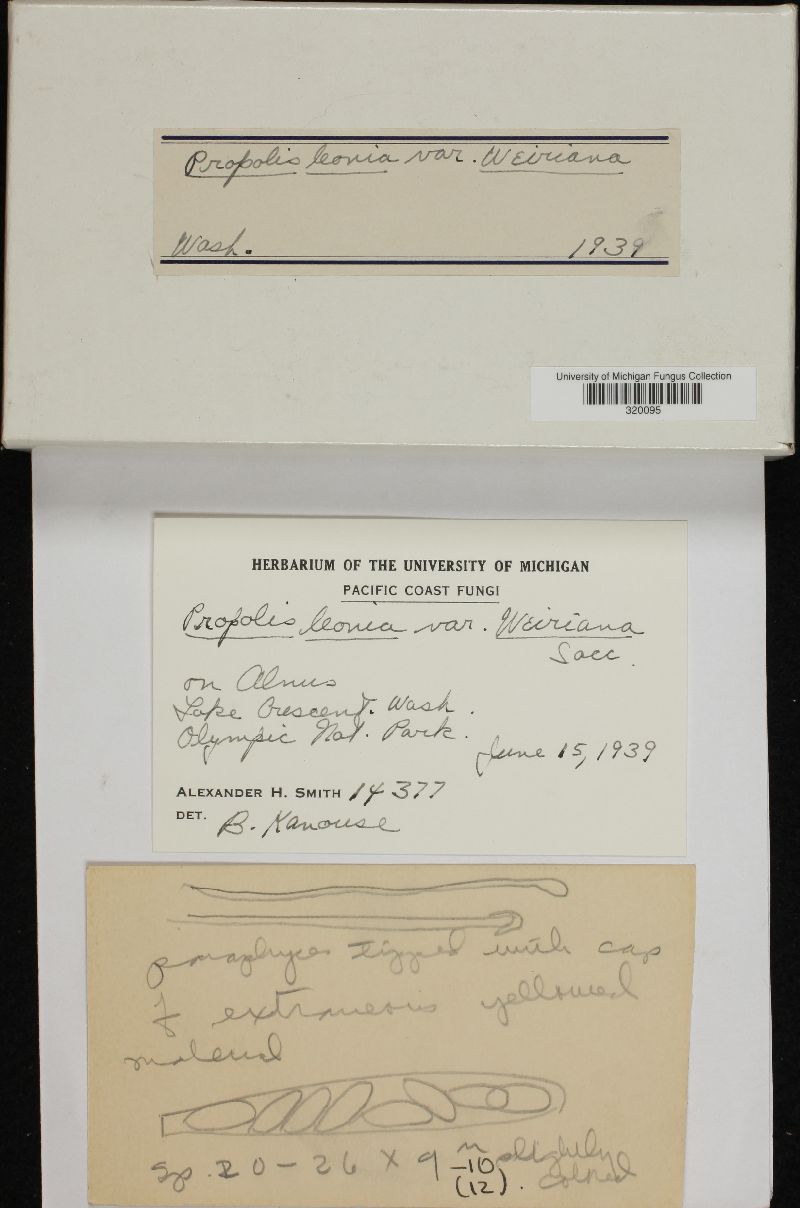 Propolis leonia var. Weiriana
Wash. 1939
University of Michigan Fungus Collection
320095
HERBARIUM OF THE UNIVERSITY OF MICHIGAN
PACIFIC COAST FUNGI
Propolis leonia var. Weiriana
Sacc.
on Alnus
Lake Crescent. Wash.
Olympic Nat. Park.
June 15, 1939
ALEXANDER H. SMITH 14377
DET. B. Kanouse
paraphyses tipped with cap
of extraneous yellowed
material
Sp. 20-26 X 9-10 slightly
(12). colored